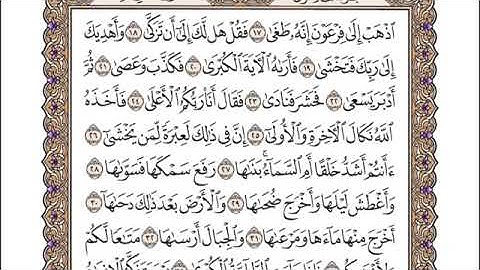 ٱذْهَبْ إِلَىٰ فِرْعَوْنَ إِنَّهُۥ طَغَىٰ ١٧ فَقُلْ هَل لَّكَ إِلَىٰٓ أَن تَزَكَّىٰ ١٨ وَأَهْدِيَكَ
إِلَىٰ رَبِّكَ فَتَخْشَىٰ ١٩ فَأَرَىٰهُ ٱلْـَٔايَةَ ٱلْكُبْرَىٰ ٢٠ فَكَذَّبَ وَعَصَىٰ ٢١ ثُمَّ
أَدْبَرَ يَسْعَىٰ ٢٢ فَحَشَرَ فَنَادَىٰ ٢٣ فَقَالَ أَنَا۠ رَبُّكُمُ ٱلْأَعْلَىٰ ٢٤ فَأَخَذَهُ
ٱللَّهُ نَكَالَ ٱلْـَٔاخِرَةِ وَٱلْأُولَىٰٓ ٢٥ إِنَّ فِي ذَٰلِكَ لَعِبْرَةً لِّمَن يَخْشَىٰٓ ٢٦
ءَأَنتُمْ أَشَدُّ خَلْقًا أَمِ ٱلسَّمَآءُۚ بَنَىٰهَا ٢٧ رَفَعَ سَمْكَهَا فَسَوَّىٰهَا ٢٨
وَأَغْطَشَ لَيْلَهَا وَأَخْرَجَ ضُحَىٰهَا ٢٩ وَٱلْأَرْضَ بَعْدَ ذَٰلِكَ دَحَىٰهَآ ٣٠
أَخْرَجَ مِنْهَا مَآءَهَا وَمَرْعَىٰهَا ٣١ وَٱلْجِبَالَ أَرْسَىٰهَا ٣٢ مَتَٰعًا لَّكُمْ